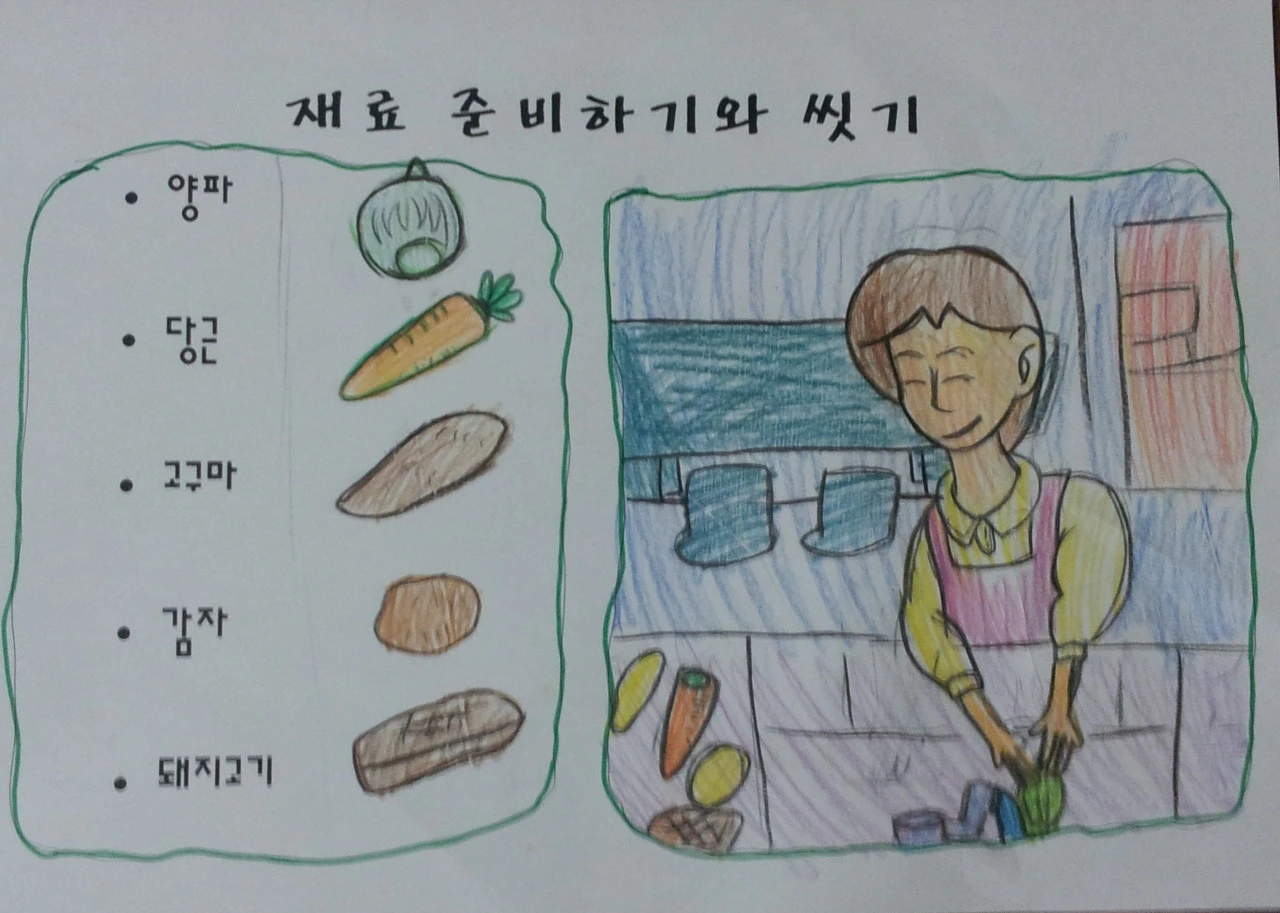 재료 준비하기와 씻기
• 양파
• 당근
• 고구마
• 감자
• 돼지고기